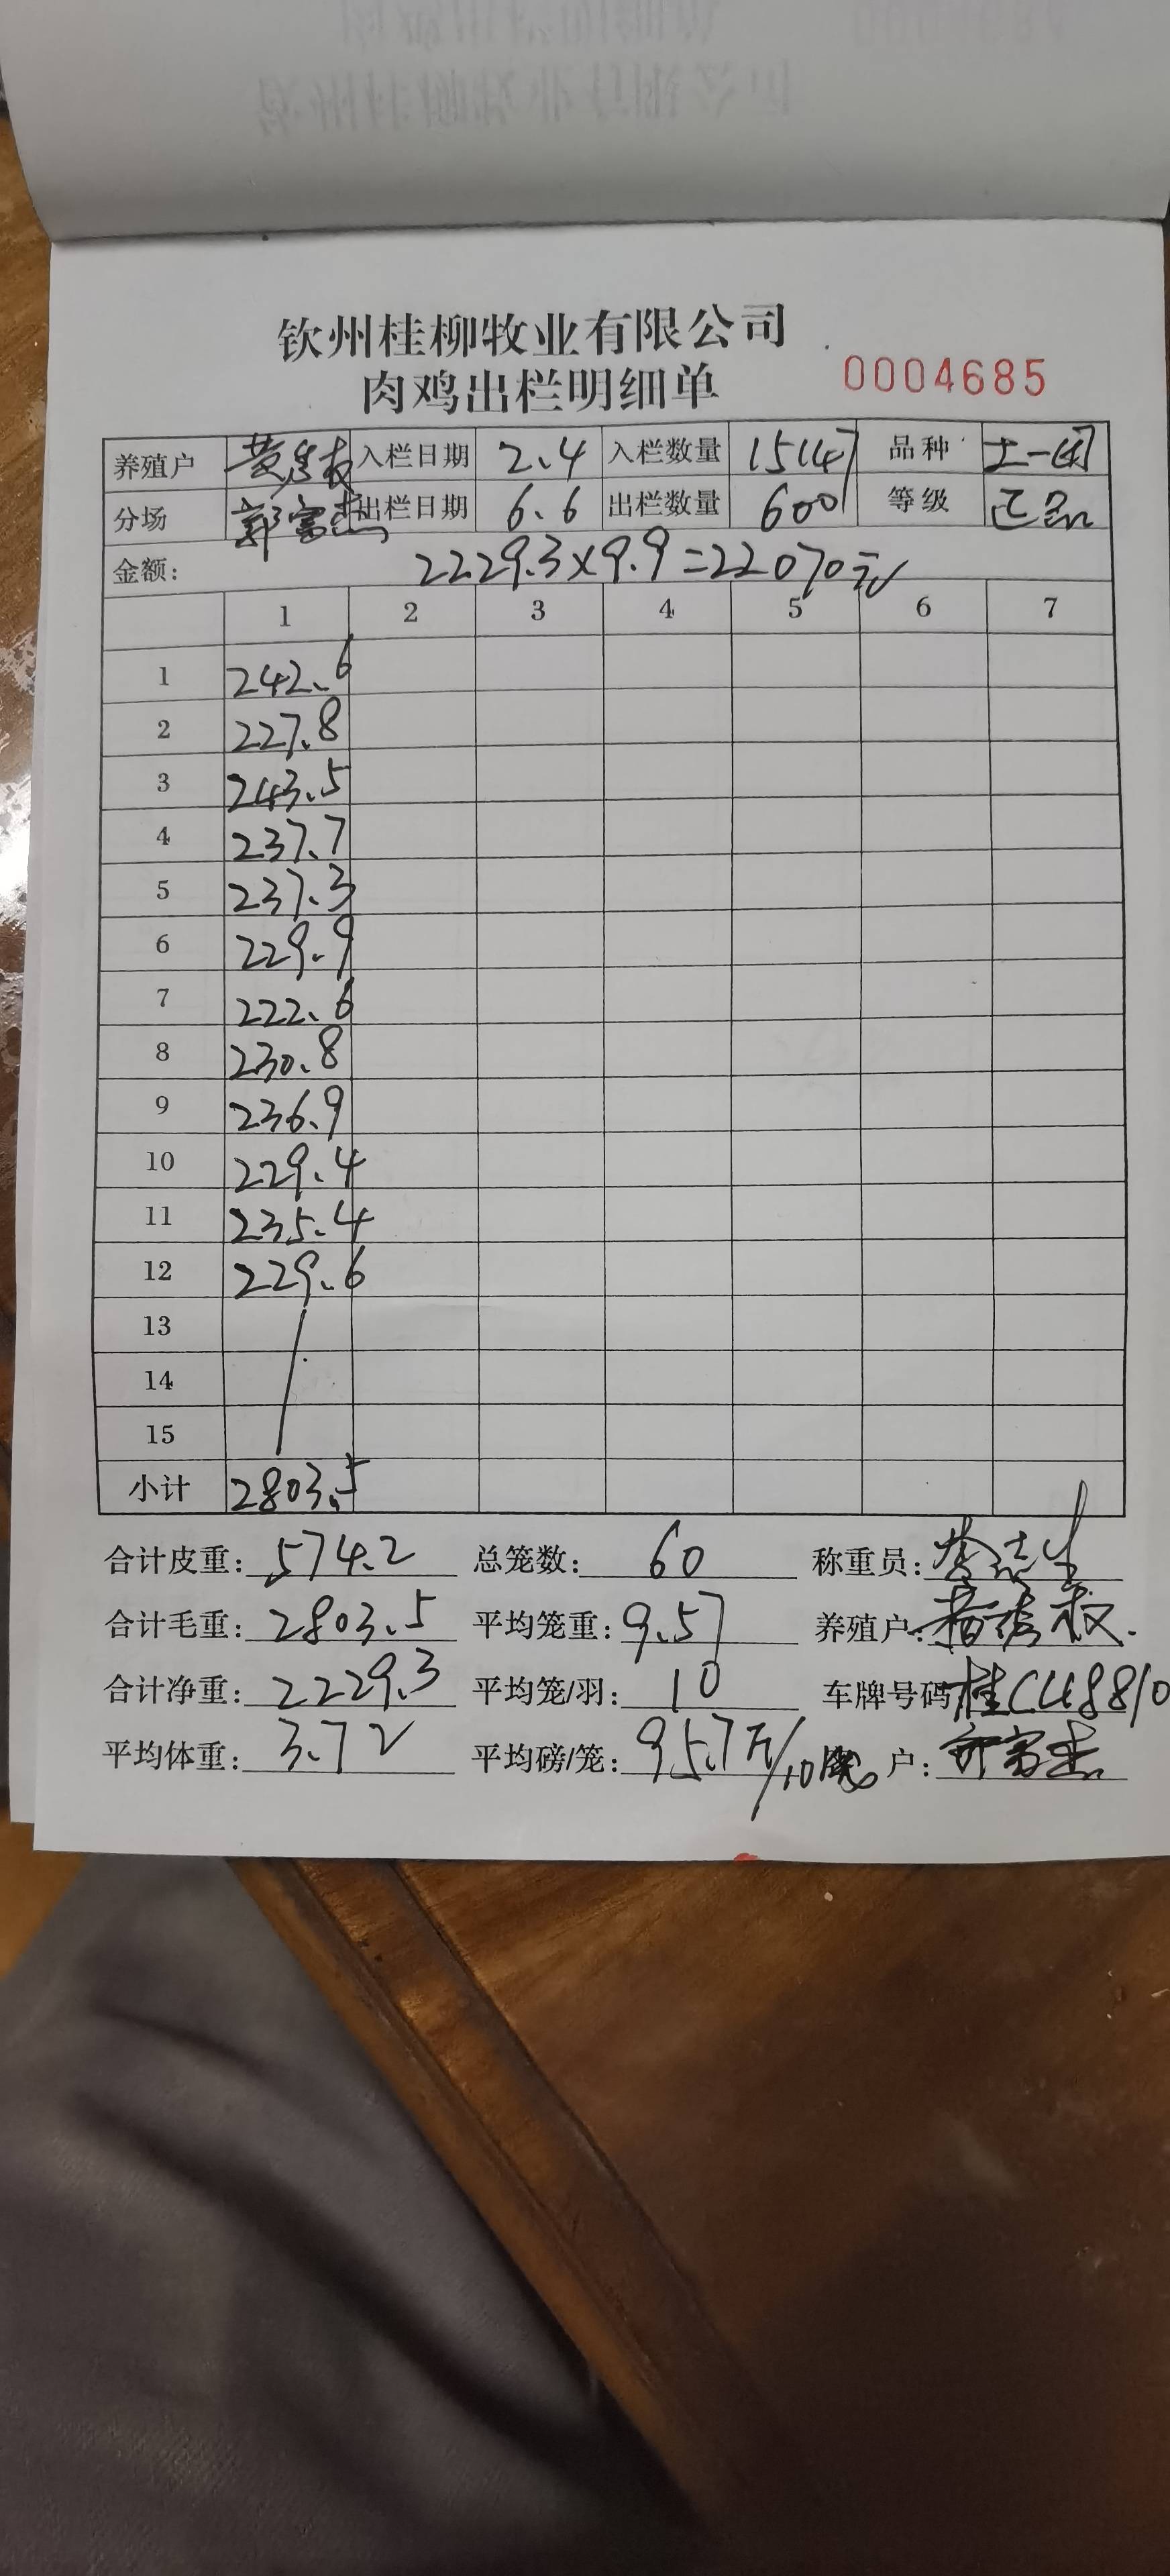 钦州桂柳牧业有限公司
肉鸡出栏明细单 0004685
养殖户 入栏日期 2.4 入栏数量 15147 品种 土一
分场 郭富杰 出栏日期 6.6 出栏数量 600 等级 正品
金额: 2229.3×9.9=22070元
1 2 3 4 5 6 7
1 242.6
2 227.8
3 243.5
4 237.7
5 237.3
6 229.9
7 222.6
8 230.8
9 236.9
10 229.4
11 235.4
12 229.6
13
14
15
小计 2803.5
合计皮重: 574.2 总笼数: 60 称重员:
合计毛重: 2803.5 平均笼重: 9.57 养殖户:
合计净重: 2229.3 平均笼/羽: 10 车牌号码 桂C48810
平均体重: 3.72 平均磅/笼: 95.7斤/10 户: